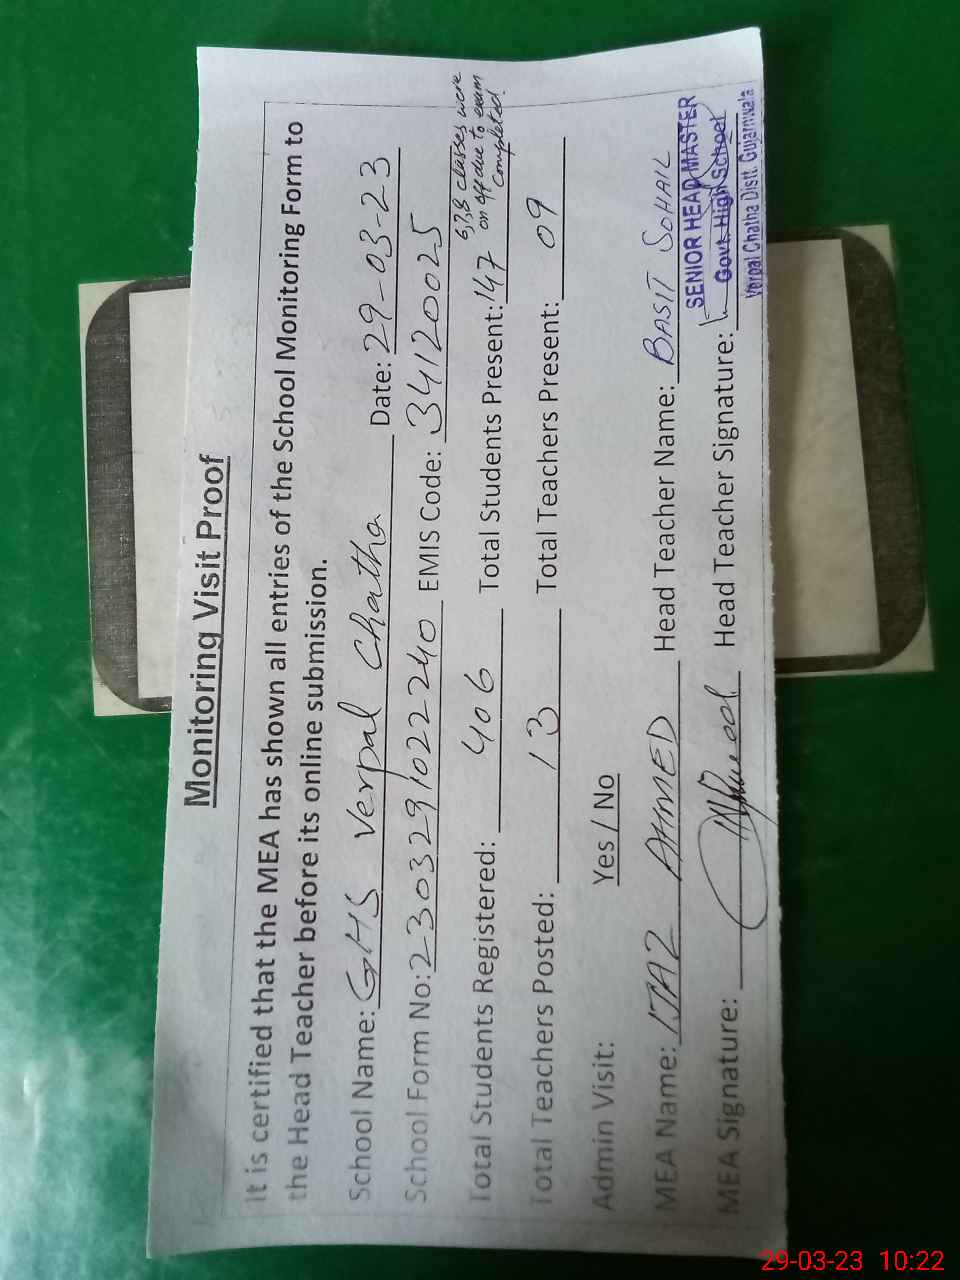 Monitoring Visit Proof
It is certified that the MEA has shown all entries of the School Monitoring Form to
the Head Teacher before its online submission.
School Name: GHS Verpal Chatha Date: 29-03-23
School Form No: 2303291022240 EMIS Code: 34120025
Total Students Registered: 406 Total Students Present: 147 6,7,8 classes were
on off due to exam
completed.
Total Teachers Posted: 13 Total Teachers Present: 09
Admin Visit: Yes / No
MEA Name: IJAZ AHMED Head Teacher Name: BASIT SOHAIL
MEA Signature: Head Teacher Signature:
SENIOR HEAD MASTER
Govt. High School
Verpal Chatha Distt. Gujranwala
29-03-23 10:22